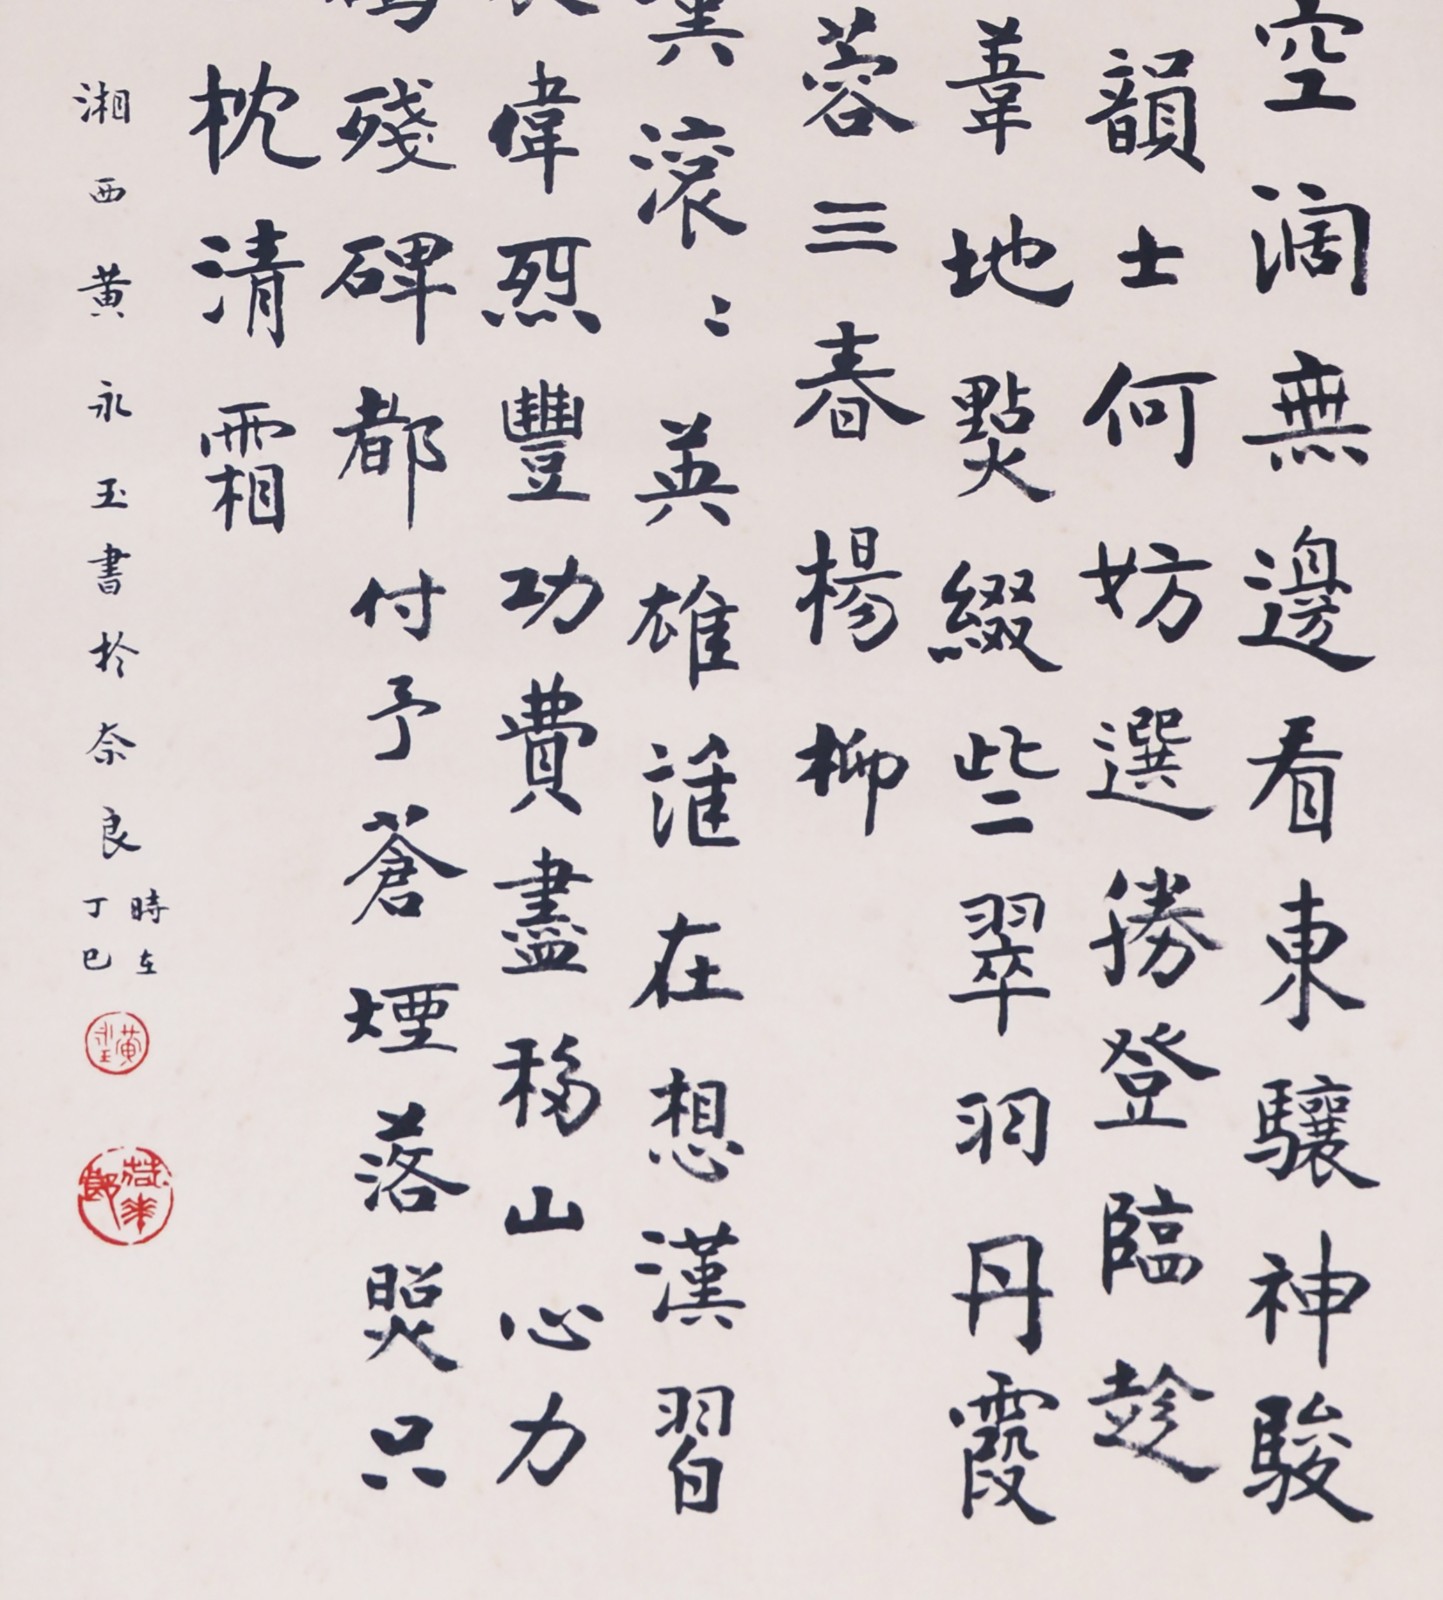 空闊無邊看東驤神駿
韻士何妨選勝登臨趁
葦地點綴些翠羽丹霞
蓉三春楊柳
滾〻英雄誰在想漢習
偉烈豐功費盡移山心力
殘碑都付予蒼煙落照只
枕清霜
湘西黄永玉書於奈良
時在
丁巳
黄永玉